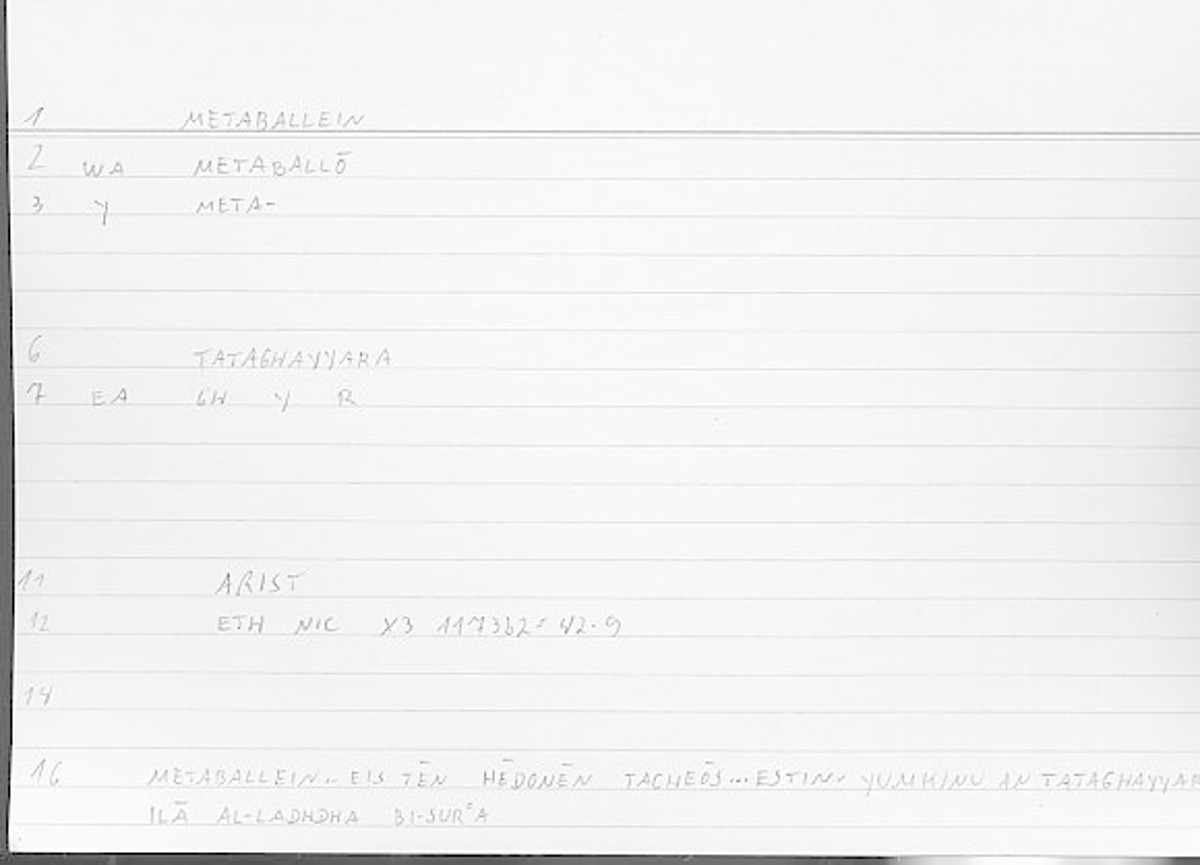 1 METABALLEIN
2 WA METABALLŌ
3 Y META-
6 TATAGHAYYARA
7 EA GH Y R
11 ARIST
12 ETH NIC X3 1173b2= 42.9
14
16 METABALLEIN.. EIS TĒN HĒDONĒN TACHEŌS... ESTIN. YUMKINU AN TATAGHAYYAR
ILĀ AL-LADHDHA BI-SURʿA